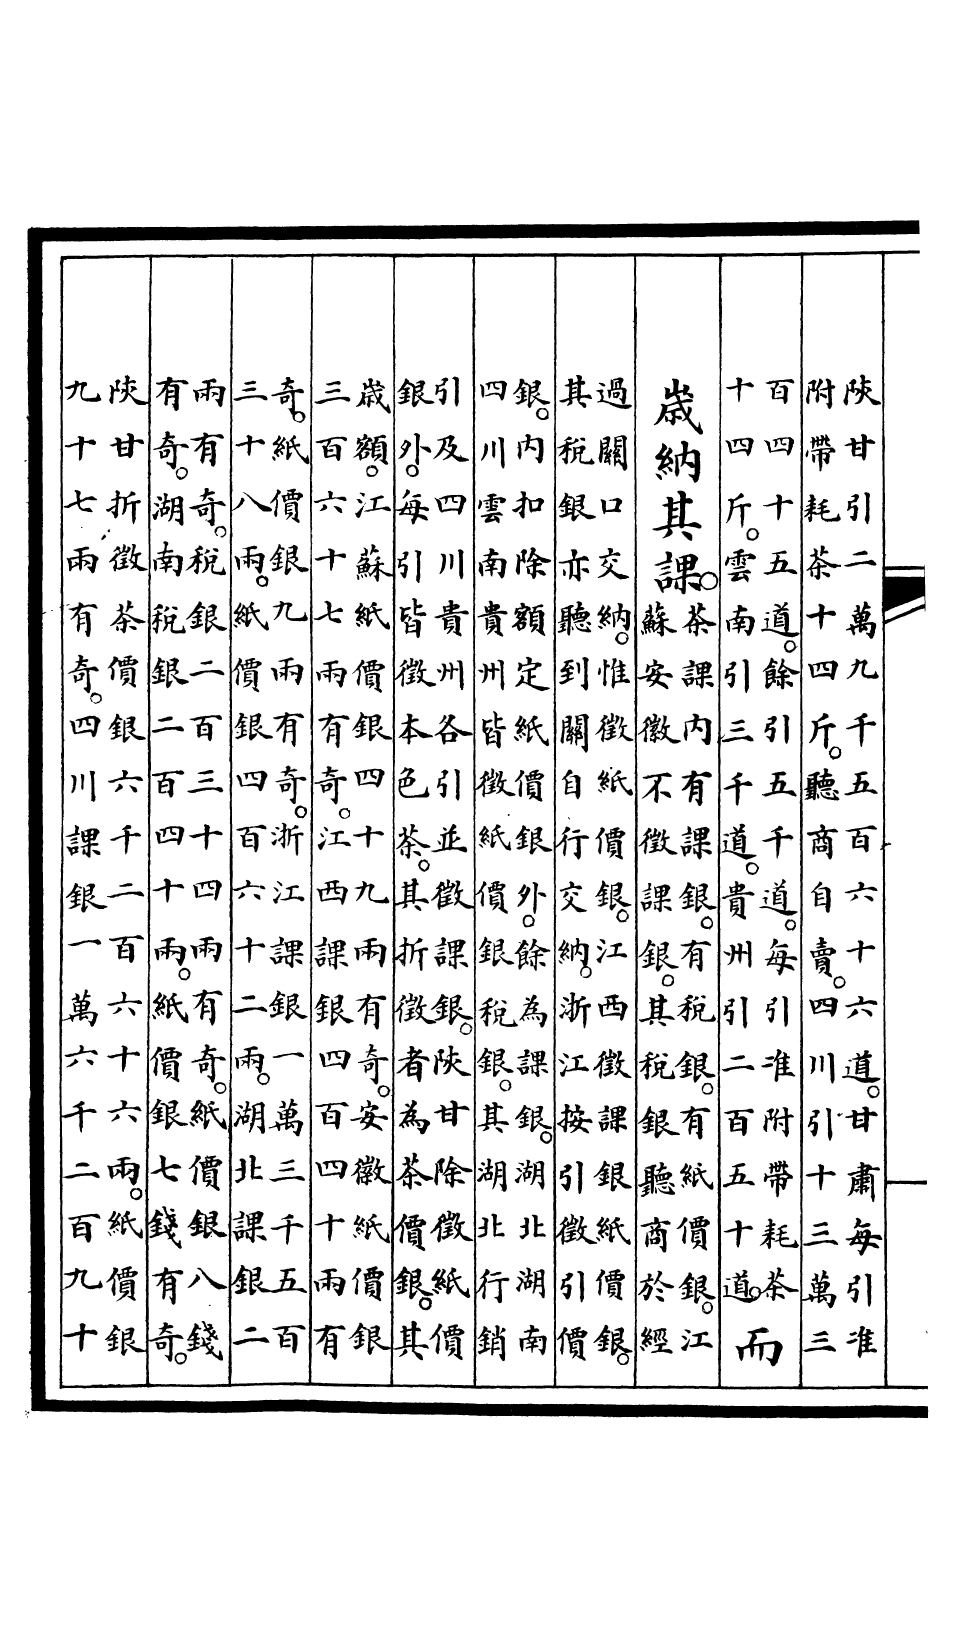 陝甘引二萬九千五百六十六道。甘肅每引准
附帶耗茶十四斤。聽商自賣。四川引十三萬三
百四十五道。餘引五千道。每引准附帶耗茶
十四斤。雲南引三千道。貴州引二百五十道。而
歲納其課。
茶課內有課銀。有稅銀。有紙價銀。江
蘇安徽不徵課銀。其稅銀聽商於經
過關口交納。惟徵紙價銀。江西徵課銀紙價銀。
其稅銀亦聽到關自行交納。浙江按引徵引價
銀。內扣除額定紙價銀外。餘為課銀。湖北湖南
四川雲南貴州皆徵紙價銀稅銀。其湖北行銷
引及四川貴州各引並徵課銀。陝甘除徵紙價
銀外。每引皆徵本色茶。其折徵者為茶價銀。其
歲額。江蘇紙價銀四十九兩有奇。安徽紙價銀
三百六十七兩有奇。江西課銀四百四十兩有
奇。紙價銀九兩有奇。浙江課銀一萬三千五百
三十八兩。紙價銀四百六十二兩。湖北課銀二
兩有奇。稅銀二百三十四兩有奇。紙價銀八錢
有奇。湖南稅銀二百四十兩。紙價銀七錢有奇。
陝甘折徵茶價銀六千二百六十六兩。紙價銀
九十七兩有奇。四川課銀一萬六千二百九十